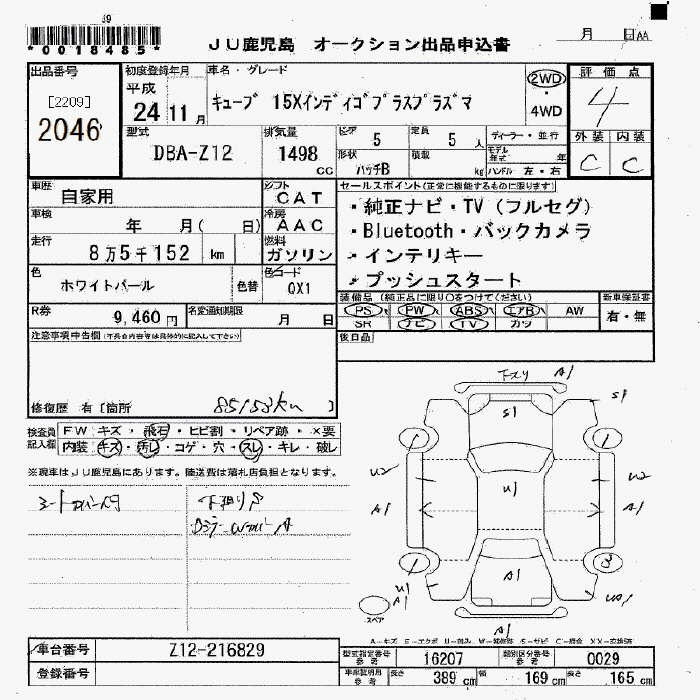 *0018485*
JU鹿児島 オークション出品申込書
月 日AA
出品番号
[2209]
2046
初度登録年月
平成
24 11 月
車名・グレード
キューブ 15Xインディゴプラスプラズマ
2WD
・
4WD
評価点
4
外装 内装
C C
型式
DBA-Z12
排気量
1498
CC
ドア
5
形状
ハッチB
定員
5 人
積載
kg
ディーラー・並行
モデル年式 年
ハンドル 左・右
車歴
自家用
シフト
CAT
車検
年 月( 日)
冷房
AAC
走行
8万5千152 km
燃料
ガソリン
色
ホワイトパール
色替
色コード
QX1
R券
9,460円
名変通知期限
月 日
セールスポイント(正常に機能するものに限ります)
・純正ナビ・TV(フルセグ)
・Bluetooth・バックカメラ
・インテリキー
・プッシュスタート
装備品(純正品に限り○をつけてください)
新車保証書
PS PW ABS エアB AW
有・無
SR ナビ TV カワ
後日品
注意事項申告欄
修復歴 有〔箇所 85153km 〕
検査員記入欄
FW キズ・飛石・ヒビ割・リペア跡・X要
内装 キズ・汚れ・コゲ・穴・スレ・キレ・破し
※現車はJU鹿児島にあります。陸送費は落札店負担となります。
A1
S1
S1
U2
U1
U2
A1
A1
A1
U1
A1
スペア
A1
A-キズ
車台番号
Z12-216829
登録番号
型式指定番号 参考
16207
類別区分番号 参考
0029
車庫証明用 参考
長さ 389 cm
幅 169 cm
高さ 165 cm